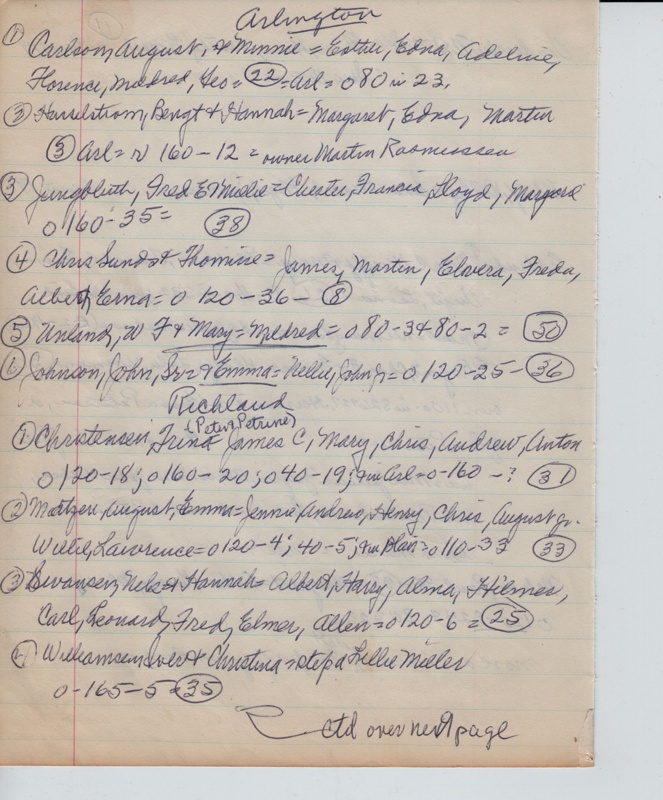 Arlington
① Carlson, August, & Minnie = Esther, Edna, Adeline,
Florence, Mildred, Geo = 22 = Arl = 0 80 in 23.
② Hasselstrom, Bengt & Hannah = Margaret, Edna, Martin
③ Arl = r 160 - 12 = owner Martin Rasmussen
③ Jungbluth, Fred E & Millie = Chester, Francis, Lloyd, Margara
0 160 - 35 = 38
④ Chris Sunds & Thomine = James, Martin, Elvera, Freda,
Albert, Erna = 0 120 - 36 - 8
⑤ Unland, W F & Mary = Mildred = 0 80 - 3 & 80 - 2 = 50
⑥ Johnson, John, Sr = & Emma = Nellie, John Jr = 0 120 - 25 - 36
Richland
(Peter, Petrine)
① Christensen, Trina James C, Mary, Chris, Andrew, Anton
0 120 - 18; 0 160 - 20; 0 40 - 19; + in Arl = 0 - 160 - ? 31
② Mattzen, August, Emma = Jennie, Andrew, Henry, Chris, August Jr.
Willie, Lawrence = 0 120 - 4; 40 - 5; + in Blair = 0 110 - 33 33
③ Swanson, Nels & Hannah = Albert, Harry, Alma, Hilmer,
Carl, Leonard, Fred, Elmer, Allen = 0 120 - 6 = 25
④ Williamsen & Christina = step d Lillie Miller
0 - 165 - 5 = 35
ctd over next page